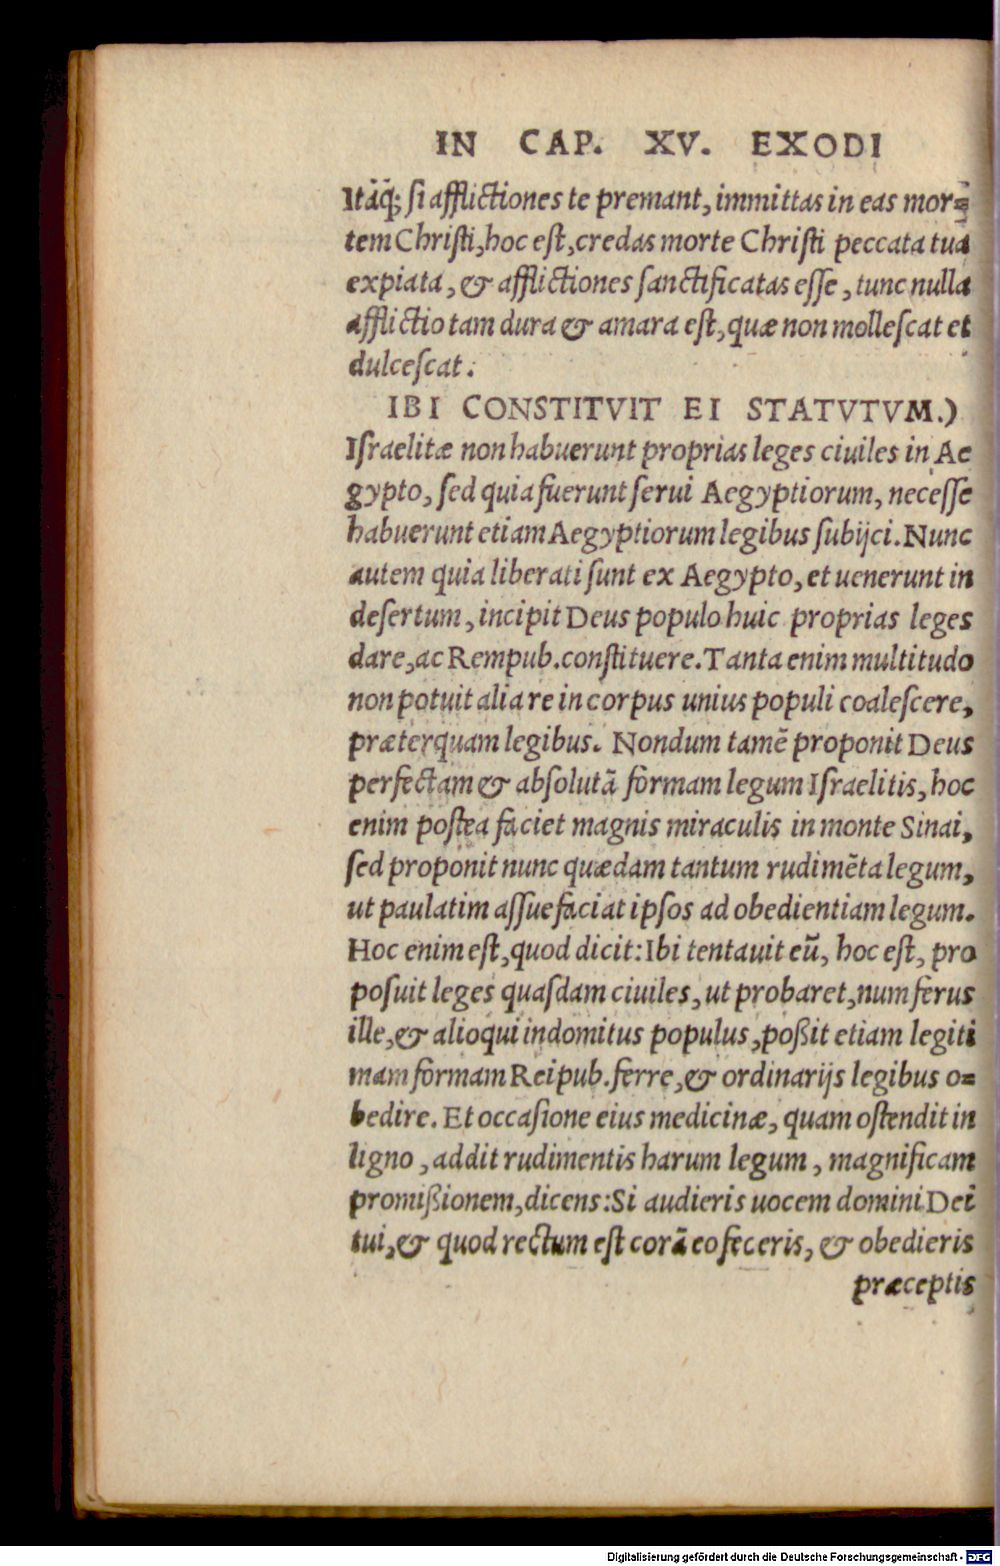 IN CAP. XV. EXODI
Itáq̃; si afflictiones te premant, immittas in eas mor=
tem Christi, hoc est, credas morte Christi peccata tua
expiata, & afflictiones sanctificatas esse, tunc nulla
afflictio tam dura & amara est, quæ non mollescat et
dulcescat.
IBI CONSTITVIT EI STATVTVM.)
Israelitæ non habuerunt proprias leges ciuiles in Ae
gypto, sed quia fuerunt serui Aegyptiorum, necesse
habuerunt etiam Aegyptiorum legibus subijci. Nunc
autem quia liberati sunt ex Aegypto, et uenerunt in
desertum, incipit Deus populo huic proprias leges
dare, ac Rempub. constituere. Tanta enim multitudo
non potuit alia re in corpus unius populi coalescere,
præterquam legibus. Nondum tamẽ proponit Deus
perfectam & absolutã formam legum Israelitis, hoc
enim postea faciet magnis miraculis in monte Sinai,
sed proponit nunc quædam tantum rudimẽta legum,
ut paulatim assuefaciat ipsos ad obedientiam legum.
Hoc enim est, quod dicit: Ibi tentauit eũ, hoc est, pro
posuit leges quasdam ciuiles, ut probaret, num ferus
ille, & alioqui indomitus populus, poßit etiam legiti
mam formam Reipub. ferre, & ordinarijs legibus o=
bedire. Et occasione eius medicinæ, quam ostendit in
ligno, addit rudimentis harum legum, magnificam
promißionem, dicens: Si audieris uocem domini Dei
tui, & quod rectum est corã eo feceris, & obedieris
præceptis
Digitalisierung gefördert durch die Deutsche Forschungsgemeinschaft - DFG